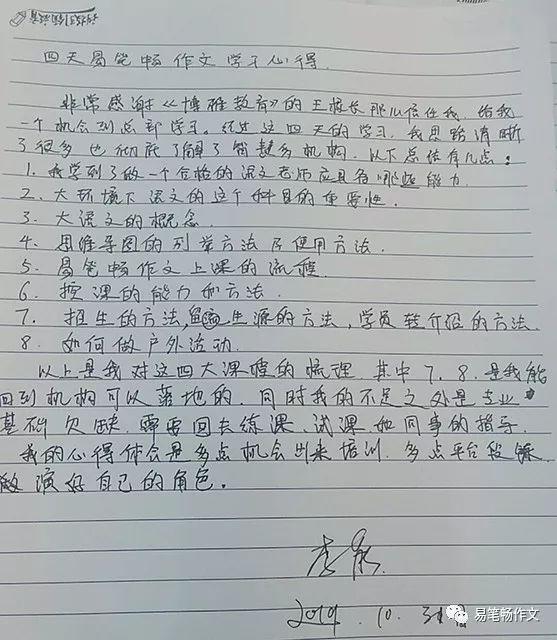 四天易笔畅作文学习心得.
非常感谢《博雅教育》的王校长那么信任我,给我
一个机会到总部学习。经过这四天的学习,我思路清晰
了很多也彻底了解了简赫多机构.以下总结有几点:
1.我学到了做一个合格的语文老师应具备哪些能力.
2.大环境下语文的这个科目的重要性.
3.大语文的概念.
4.思维导图的列举方法及使用方法.
5.易笔畅作文上课的流程
6.授课的能力和方法.
7.招生的方法,留生源的方法,学员转介绍的方法.
8.如何做户外活动.
以上是我对这四大课程的梳理.其中7.8.是我能
回到机构可以落地的.同时我的不足之处是专业
基础欠缺.需要回去练课、试课和同事的指导.
我的心得体会是多点机会出来培训.多点平台锻炼
演好自己的角色。
2019.10.31
易笔畅作文